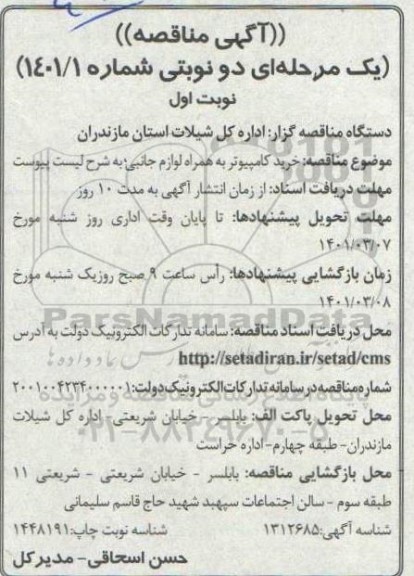 ((آگهی مناقصه))
(یک مرحله‌ای دو نوبتی شماره ۱۴۰۱/۱)
نوبت اول
دستگاه مناقصه گزار: اداره کل شیلات استان مازندران
موضوع مناقصه: خرید کامپیوتر به همراه لوازم جانبی به شرح لیست پیوست
مهلت دریافت اسناد: از زمان انتشار آگهی به مدت ۱۰ روز
مهلت تحویل پیشنهادها: تا پایان وقت اداری روز شنبه مورخ
۱۴۰۱/۰۳/۰۷
زمان بازگشایی پیشنهادها: رأس ساعت ۹ صبح روزیک شنبه مورخ
۱۴۰۱/۰۳/۰۸
ParsNamadData
محل دریافت اسناد مناقصه: سامانه تدارکات الکترونیک دولت به آدرس
http://setadiran.ir/setad/cms
شماره مناقصه در سامانه تدارکات الکترونیک دولت: ۲۰۰۱۰۰۴۲۳۴۰۰۰۰۰۱
محل تحویل پاکت الف: بابلسر - خیابان شریعتی- اداره کل شیلات
مازندران- طبقه چهارم-اداره حراست
۰۲۱-۸۸۳۴۹۶۷۰-۵
محل بازگشایی مناقصه: بابلسر - خیابان شریعتی - شریعتی ۱۱
طبقه سوم - سالن اجتماعات سپهبد شهید حاج قاسم سلیمانی
شناسه آگهی: ۱۳۱۲۶۸۵ شناسه نوبت چاپ: ۱۴۴۸۱۹۱
حسن اسحاقی- مدیر کل